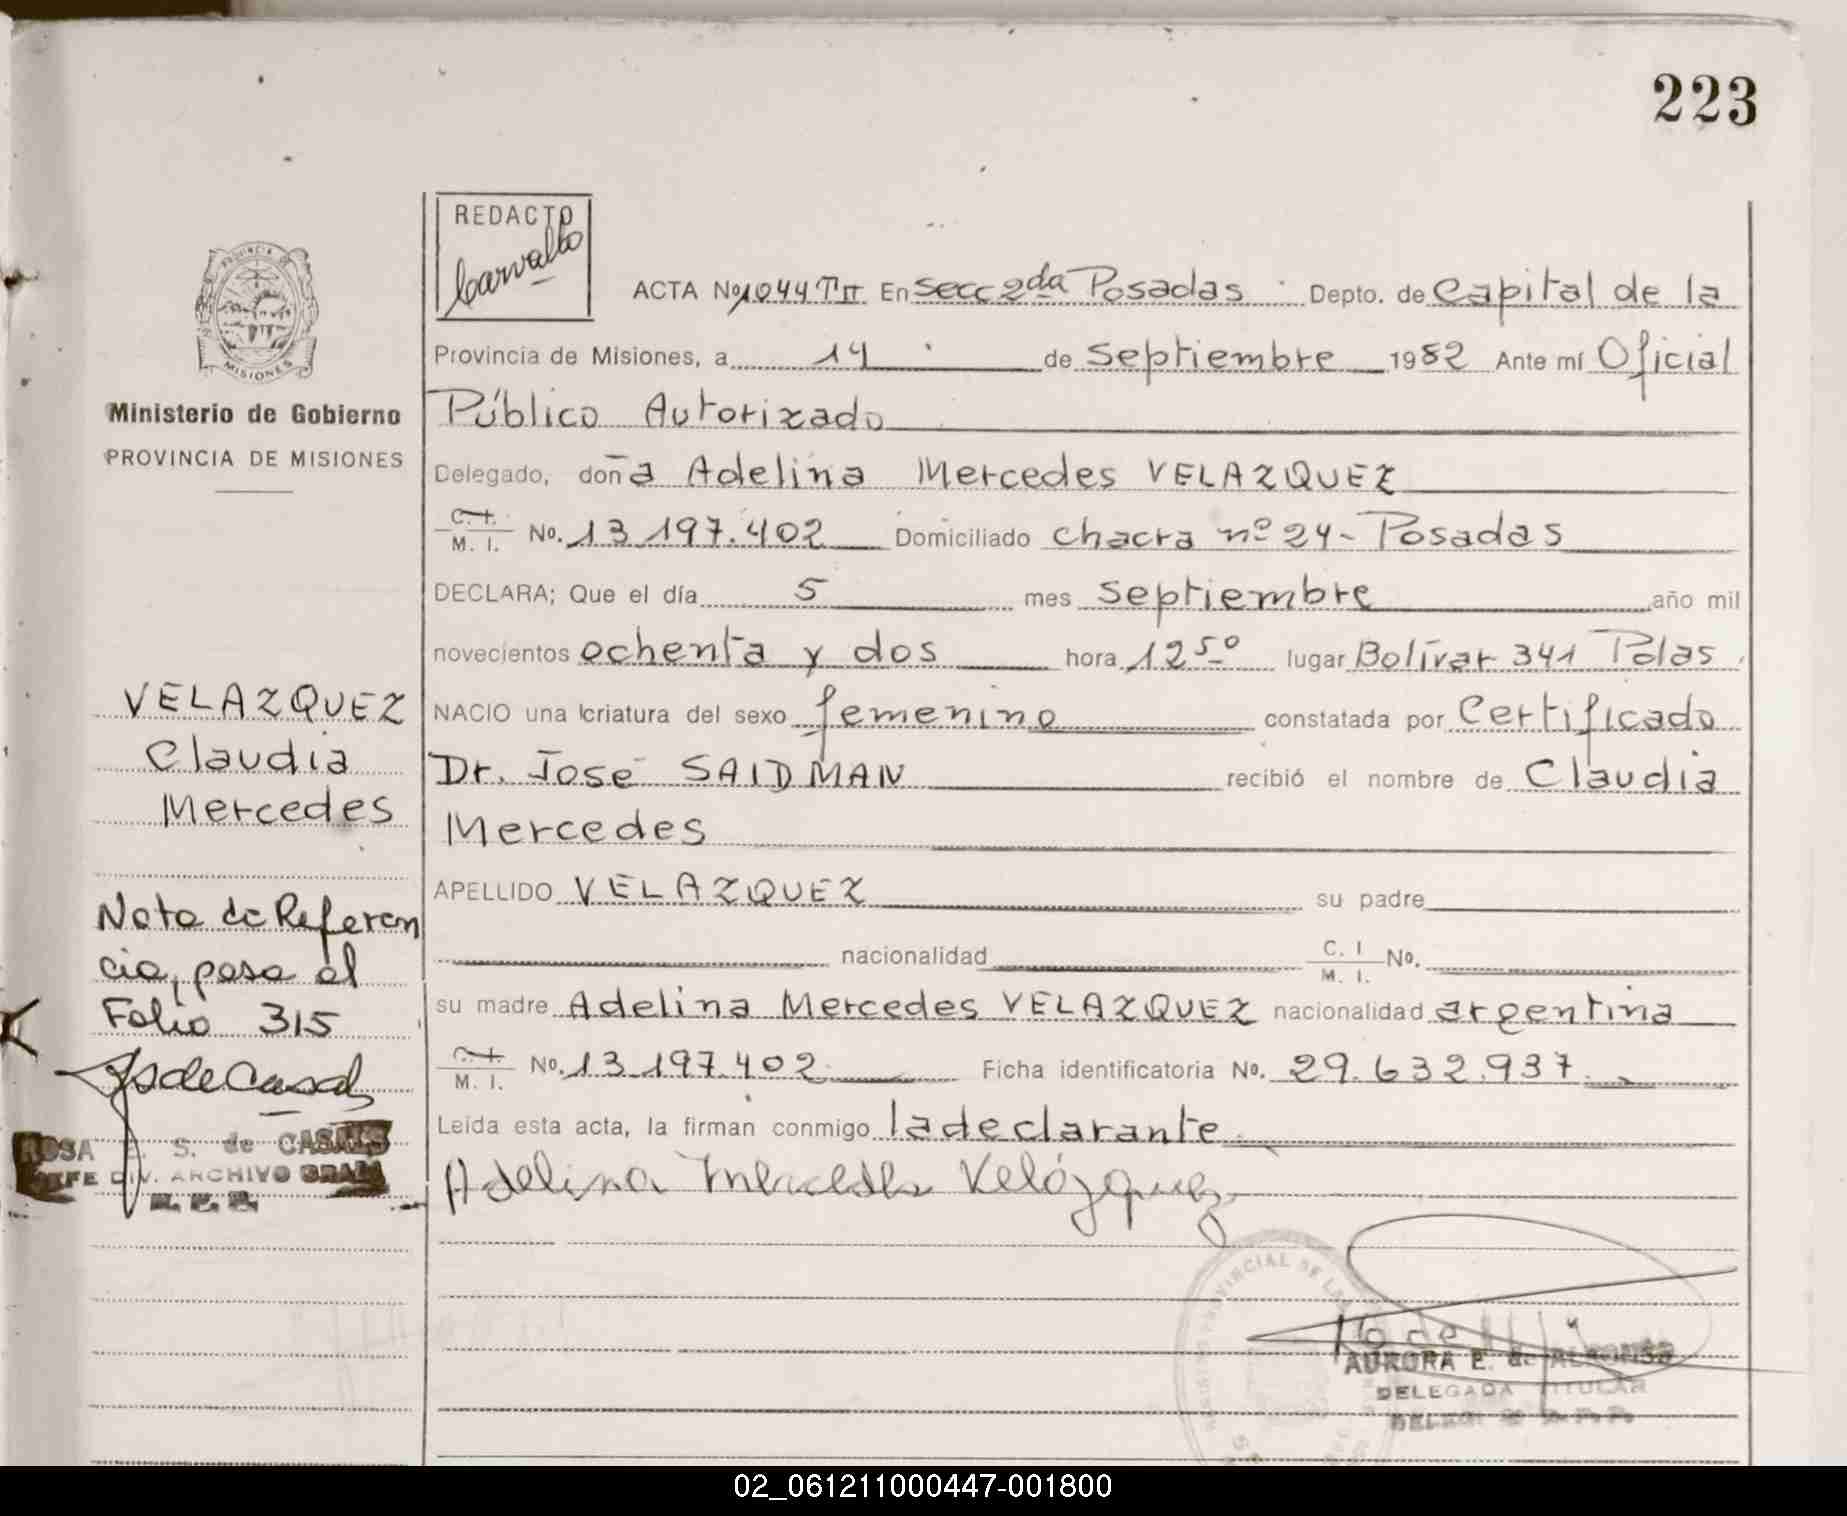 223
REDACTO
Carvallo
ACTA Nº 1044 T II En Secc 2da Posadas Depto. de Capital de la
Provincia de Misiones, a 14 de Septiembre 1982 Ante mí Oficial
Público Autorizado
Delegado, doña Adelina Mercedes VELAZQUEZ
C. I. M. I. No. 13.197.402 Domiciliado Chacra nº 24 - Posadas
DECLARA; Que el día 5 mes Septiembre año mil
novecientos ochenta y dos hora 12 50 lugar Bolívar 341 Pdas
NACIO una criatura del sexo femenino constatada por Certificado
Dr. José SAIDMAN recibió el nombre de Claudia
Mercedes
APELLIDO VELAZQUEZ su padre
nacionalidad C. I. M. I. No.
su madre Adelina Mercedes VELAZQUEZ nacionalidad argentina
C. I. M. I. No. 13.197.402 Ficha identificatoria No. 29.632.937
Leida esta acta, la firman conmigo la declarante
Adelina Mercedes Velázquez
AURORA E. de ALFONSO
DELEGADA TITULAR
PROVINCIA DE
MISIONES
Ministerio de Gobierno
PROVINCIA DE MISIONES
VELAZQUEZ
Claudia
Mercedes
Nota de Referen
cia, pasa al
Folio 315
ROSA S. de CASALS
JEFE DIV. ARCHIVO GRAL
02_061211000447-001800